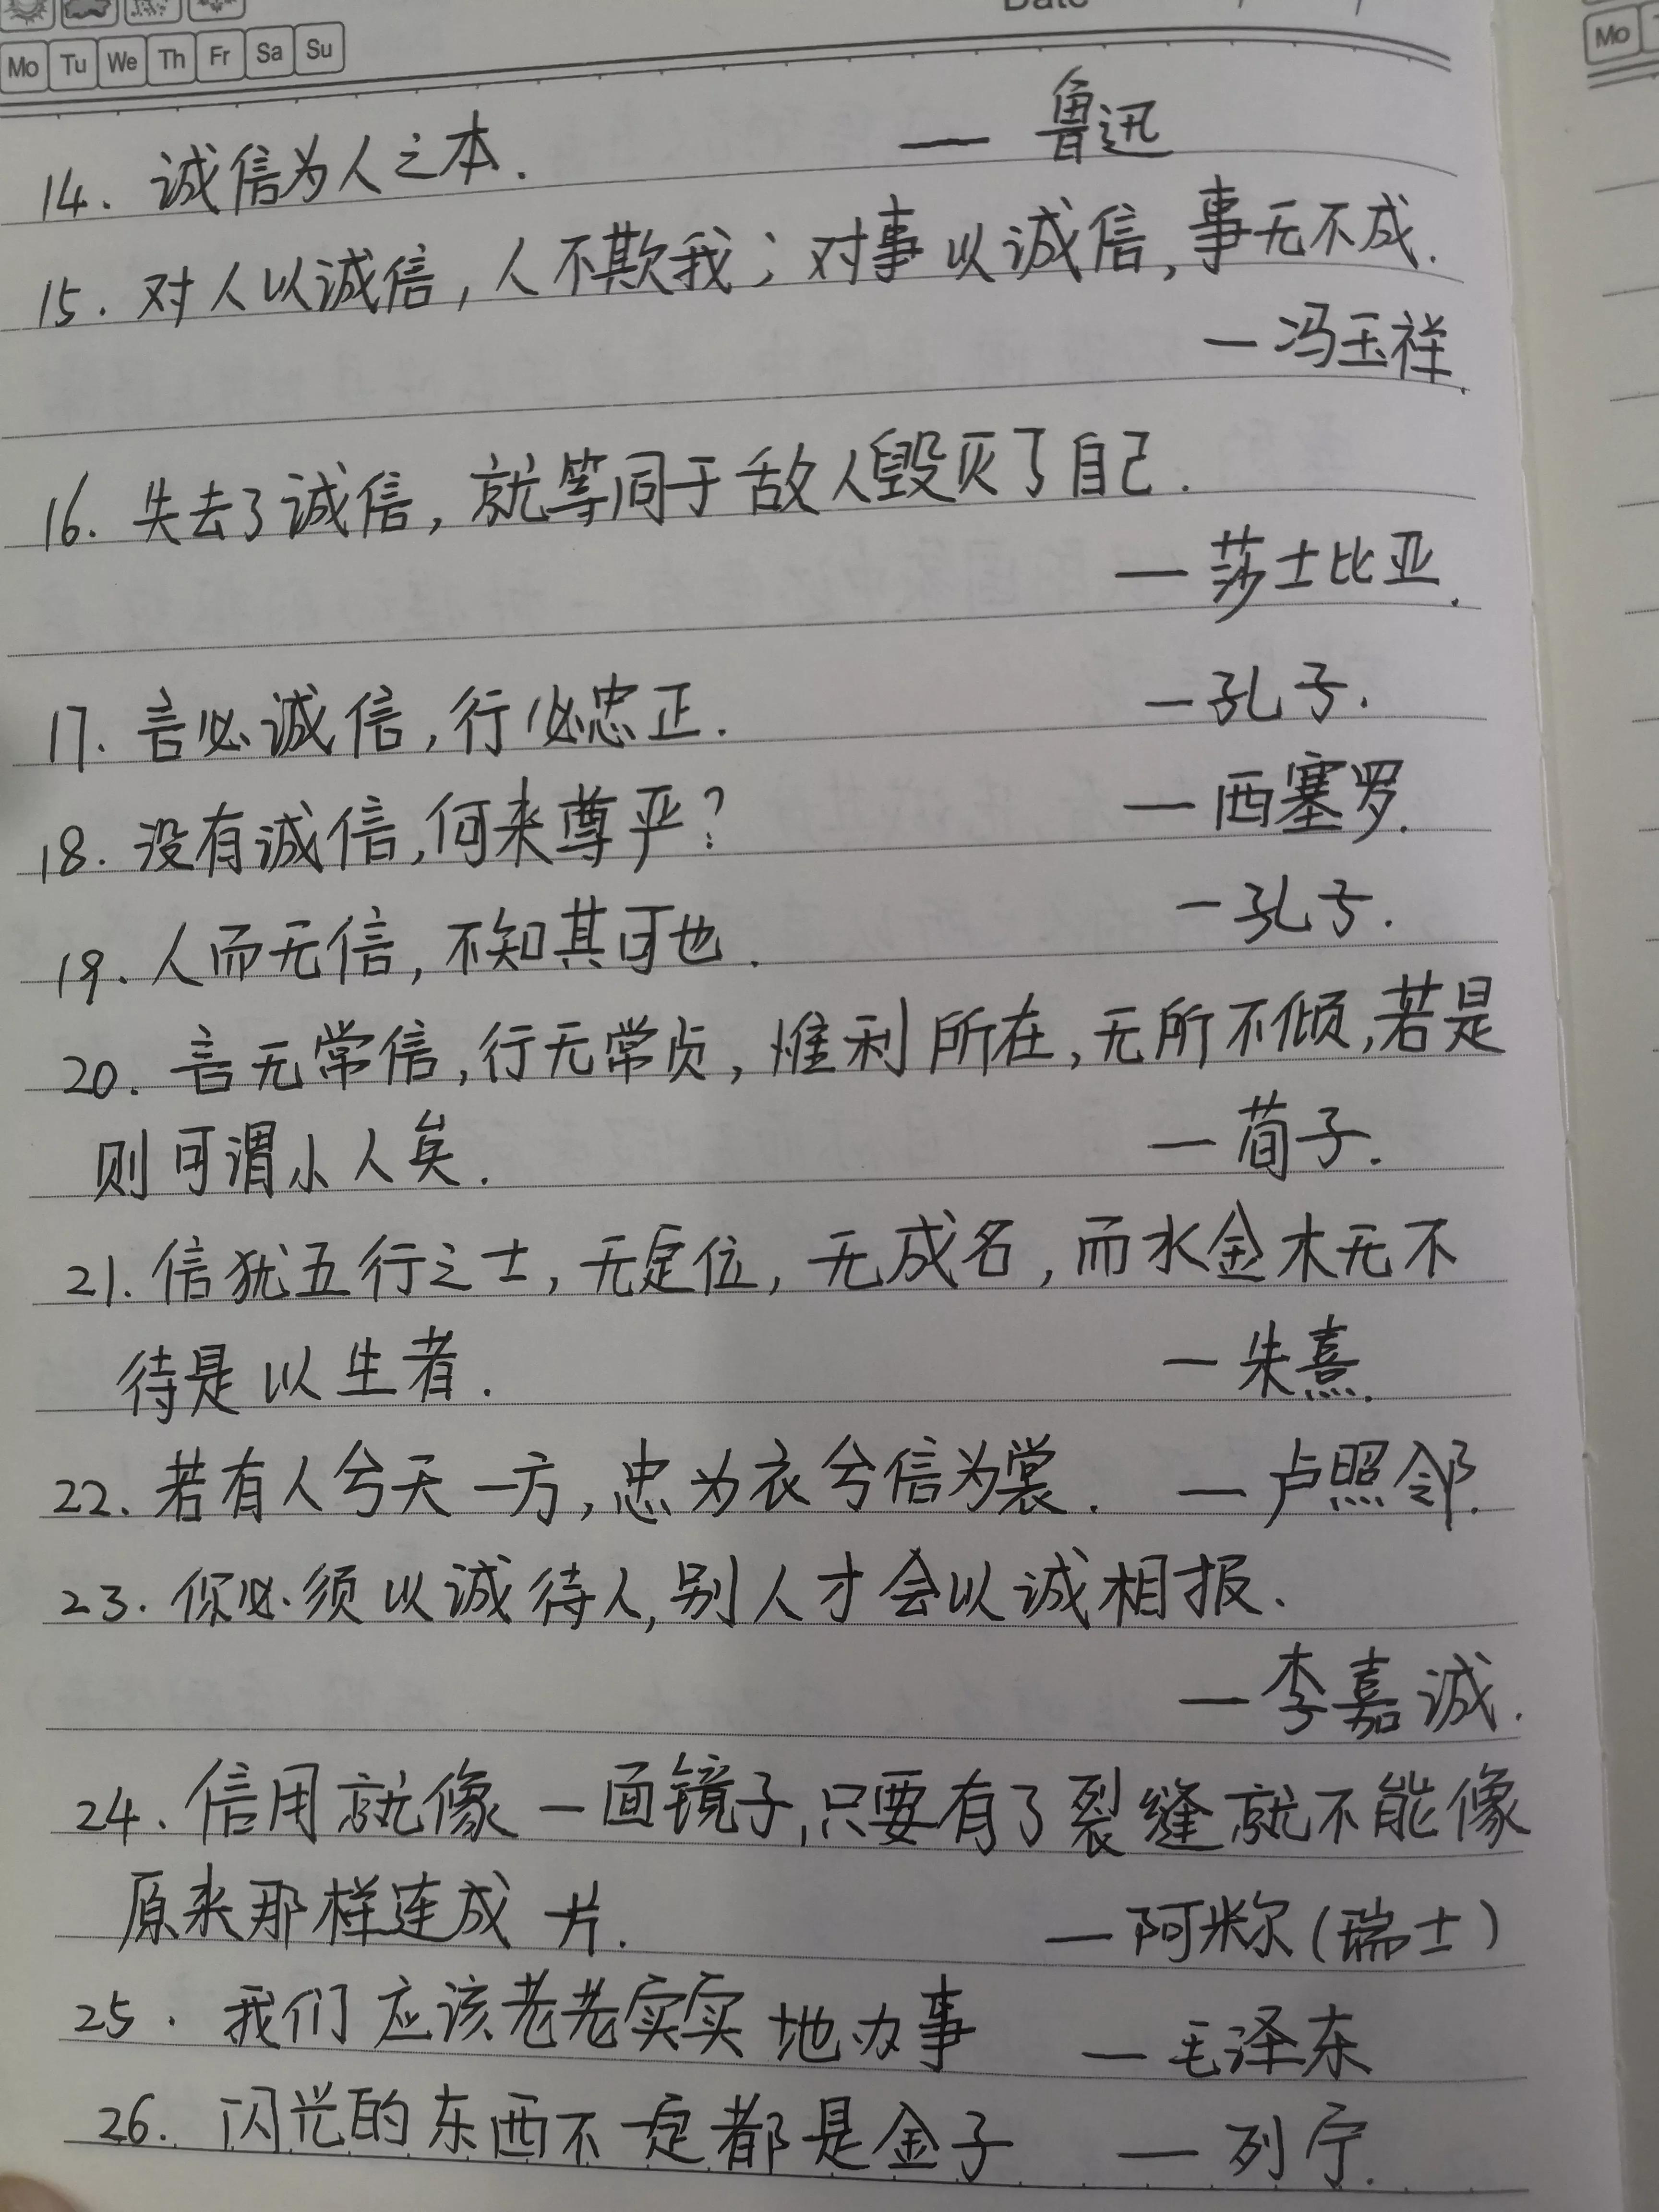 Date
Mo Tu We Th Fr Sa Su
Mo
14. 诚信为人之本. — 鲁迅
15. 对人以诚信, 人不欺我; 对事以诚信, 事无不成.
— 冯玉祥.
16. 失去了诚信, 就等同于敌人毁灭了自己.
— 莎士比亚.
17. 言必诚信, 行必忠正. — 孔子.
18. 没有诚信, 何来尊严? — 西塞罗.
19. 人而无信, 不知其可也. — 孔子.
20. 言无常信, 行无常贞, 惟利所在, 无所不倾, 若是
则可谓小人矣. — 荀子.
21. 信犹五行之士, 无定位, 无成名, 而水金木无不
待是以生者. — 朱熹.
22. 若有人兮天一方, 忠为衣兮信为裳. — 卢照邻.
23. 你必须以诚待人, 别人才会以诚相报.
— 李嘉诚.
24. 信用就像一面镜子, 只要有了裂缝就不能像
原来那样连成一片. — 阿米尔(瑞士)
25. 我们应该老老实实地办事 — 毛泽东
26. 闪光的东西不一定都是金子 — 列宁.